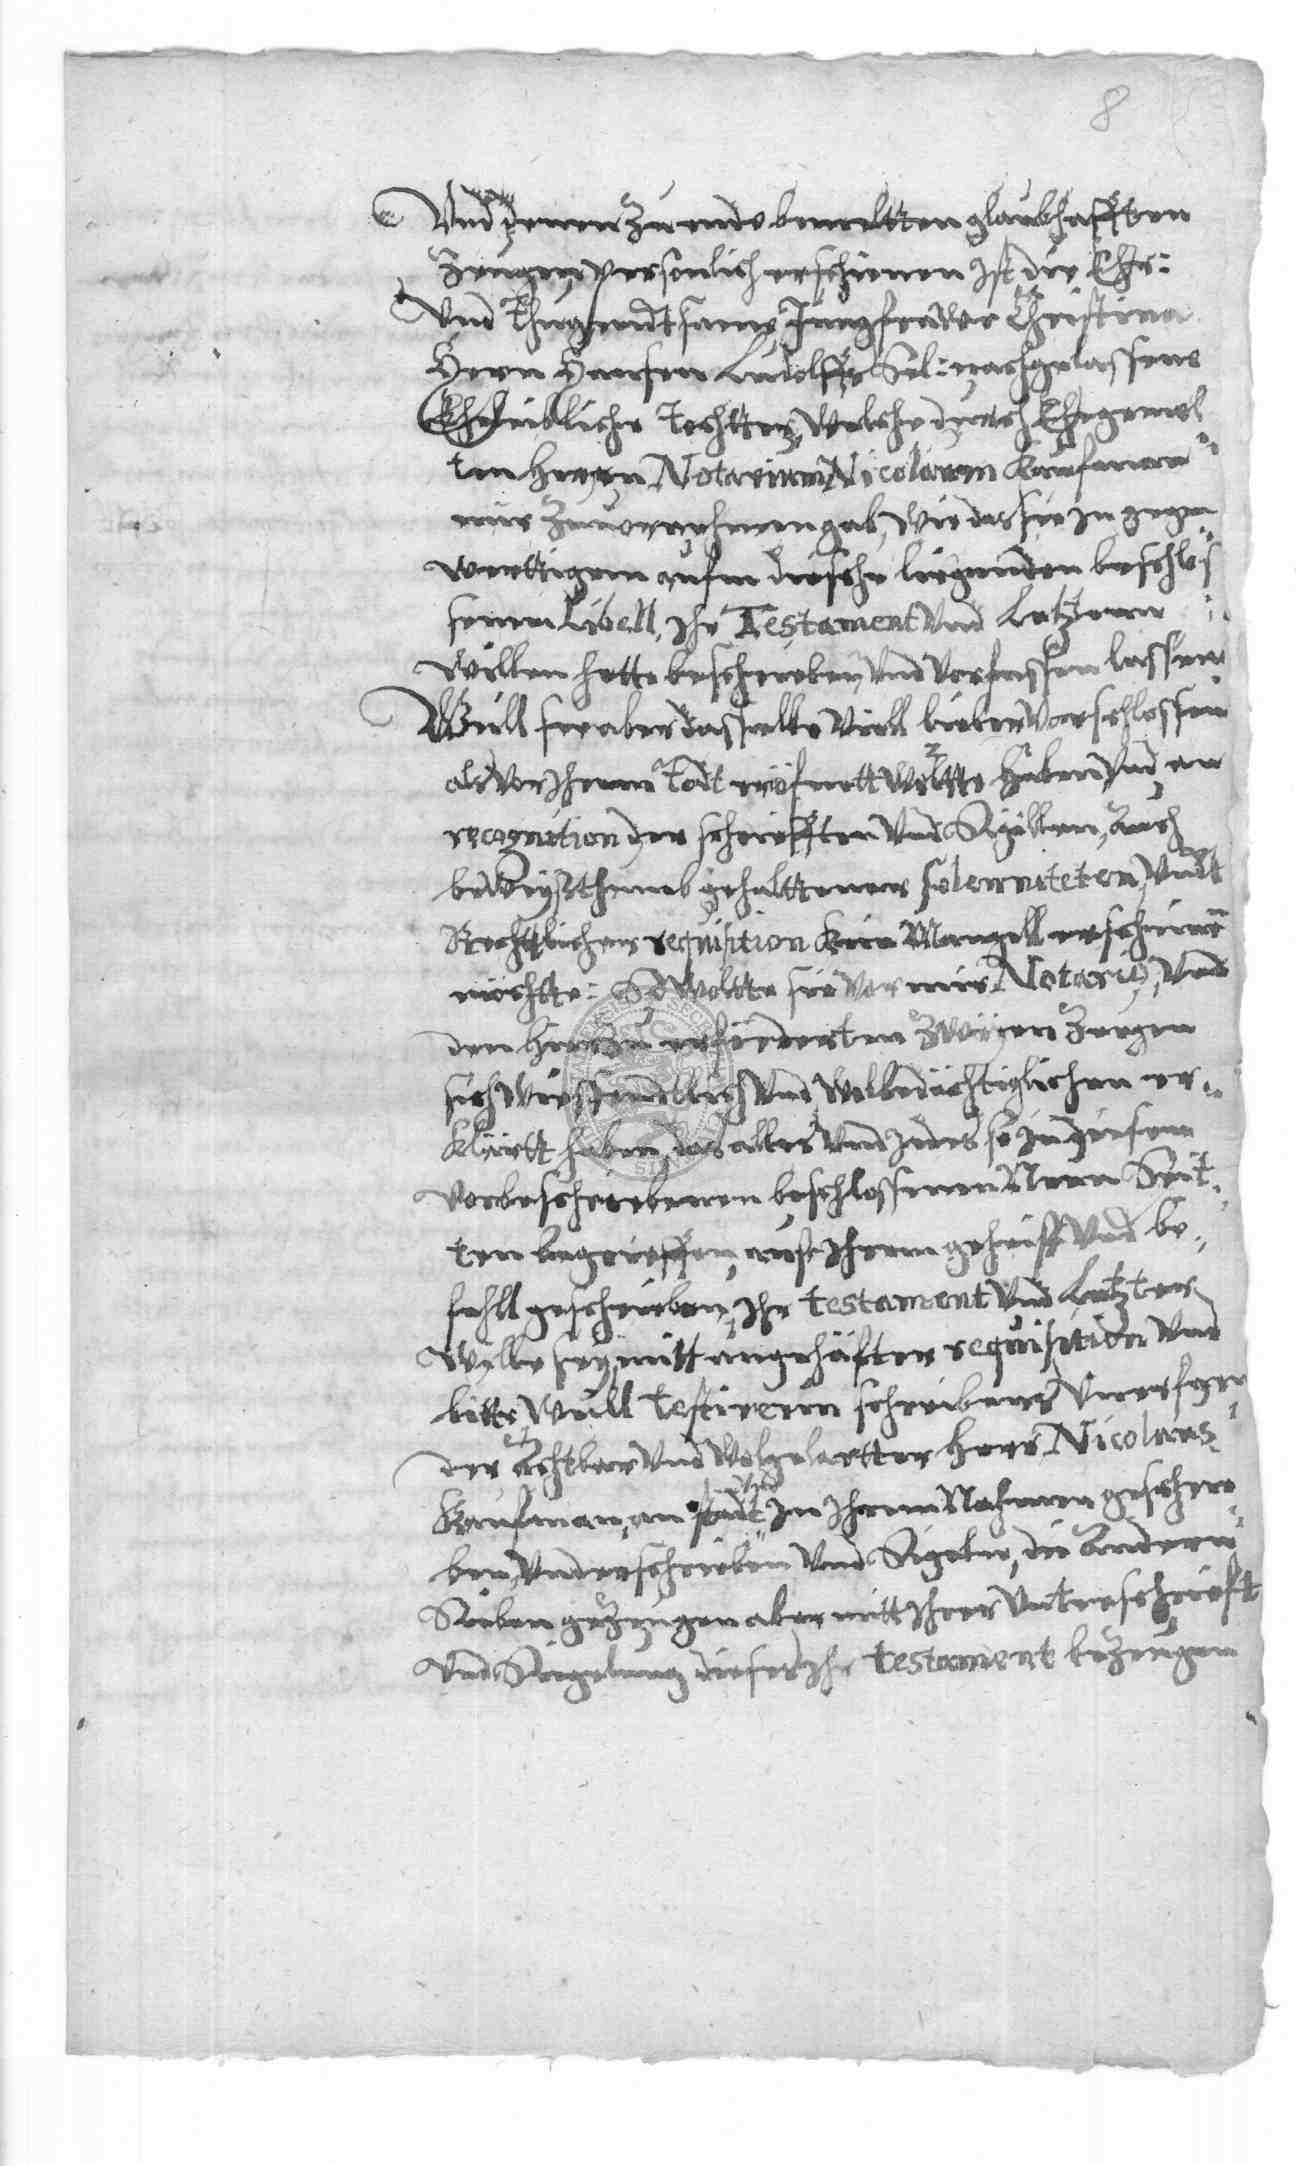 8
Vnd denen zu ende bemeltten glaubhafften
Zeugen persenlich erschienen ist die Ehr:
Vnd Thugendtsame Jungfrawe Christina
Herrn Hansen Ludolffs Sel: nachgelassene
Eheleibliche Tochtter, Welche durch Ehegemel
ten Herren Notarium Nicolaum Kaufman
mir Zuuornehmen gab, wie das sie in gegen
werttigem aufm tische liegenden beschlos
senen Libell, Ihr Testament Vnd Letzten
willen hette beschrieben, Vnd Verfassen lassen
Weill sie aber dasselbe Viell lieber Vorschlossen
als Vor Ihrem Todt eröfnett Woltte haben, Vnd an
recognition der schriefften Vnd Sigillen, Auch
gehalttener solemniteten, Vndt
Rechtlicher requisition Kein Mangell erscheinen
möchtte: So Woltte sie Vor mir Notario, Vnd
den hierzu erfordertten Zweyen Zeugen
sich Wiessentlich Vnd Wolbedächtiglichen er-
klärtt haben, das alles Vnd Jedes so in diesem
Vorbeschriebenen beschlossenen Neun Seit-
ten begrieffen, aus Ihrem geheiss Vnd be-
fehll geschrieben, Ihr testament Vnd Letzter
Wille sey, mitt angehäfter requisition Vnd
bitte, Weill Testirerin schreibens Vnerfaren
der Achtbar Vnd Wolgelartter Herr Nicolaus
Kaufman, an stadt In Ihrem Nahmen geschrie
ben, Vnderschrieben Vnd Sigeln, die Andern
Sieben geZeugen aber mitt Ihrer Vnterschrieft
Vnd Siegelung dieses Ihr testament beZeugen